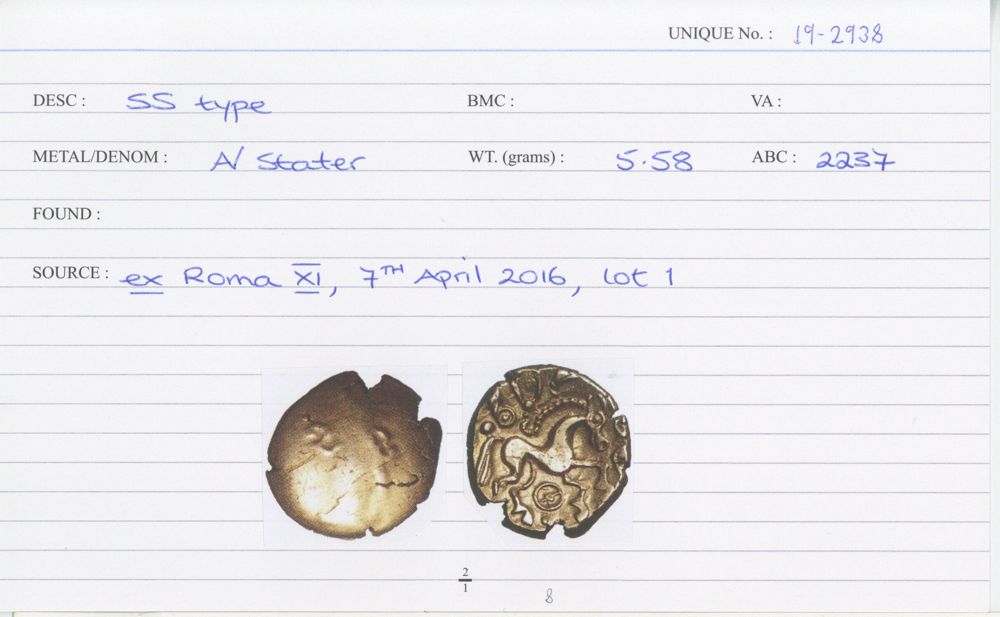 UNIQUE No. : 19-2938
DESC : SS type BMC : VA :
METAL/DENOM : A/ Stater WT. (grams) : 5.58 ABC : 2237
FOUND :
SOURCE : ex Roma XI, 7TH April 2016, lot 1
2
1
8